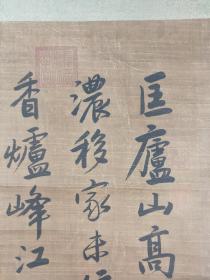 匡廬山高
濃移家未
香爐峰江